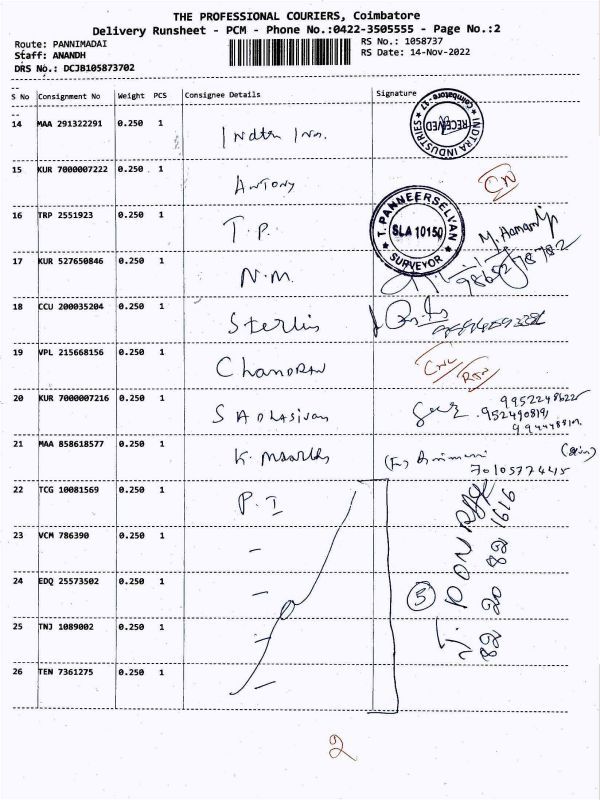 THE PROFESSIONAL COURIERS, Coimbatore
Delivery Runsheet - PCM - Phone No.:0422-3505555 - Page No.:2
Route: PANNIMADAI
RS No.: 1058737
Staff: ANANDH
RS Date: 14-Nov-2022
DRS No.: DCJB105873702
S No Consignment No Weight PCS Consignee Details Signature
14 MAA 291322291 0.250 1
INDTRA INDUSTRIES
Coimbatore-17
RECEIVED
15 KUR 7000007222 0.250 1 ANTONY CN
16 TRP 2551923 0.250 1 T.P.
T. PANNEERSELVAN
SLA 10150
SURVEYOR
17 KUR 527650846 0.250 1 N.M.
18 CCU 200035204 0.250 1
19 VPL 215668156 0.250 1 CHANDRAN
20 KUR 7000007216 0.250 1 SADHASIVAM
21 MAA 858618577 0.250 1 K. 
22 TCG 10081569 0.250 1 P. I
23 VCM 786390 0.250 1 –
24 EDQ 25573502 0.250 1 –
25 TNJ 1089002 0.250 1 –
26 TEN 7361275 0.250 1 –
5
82 20 82 1616
2